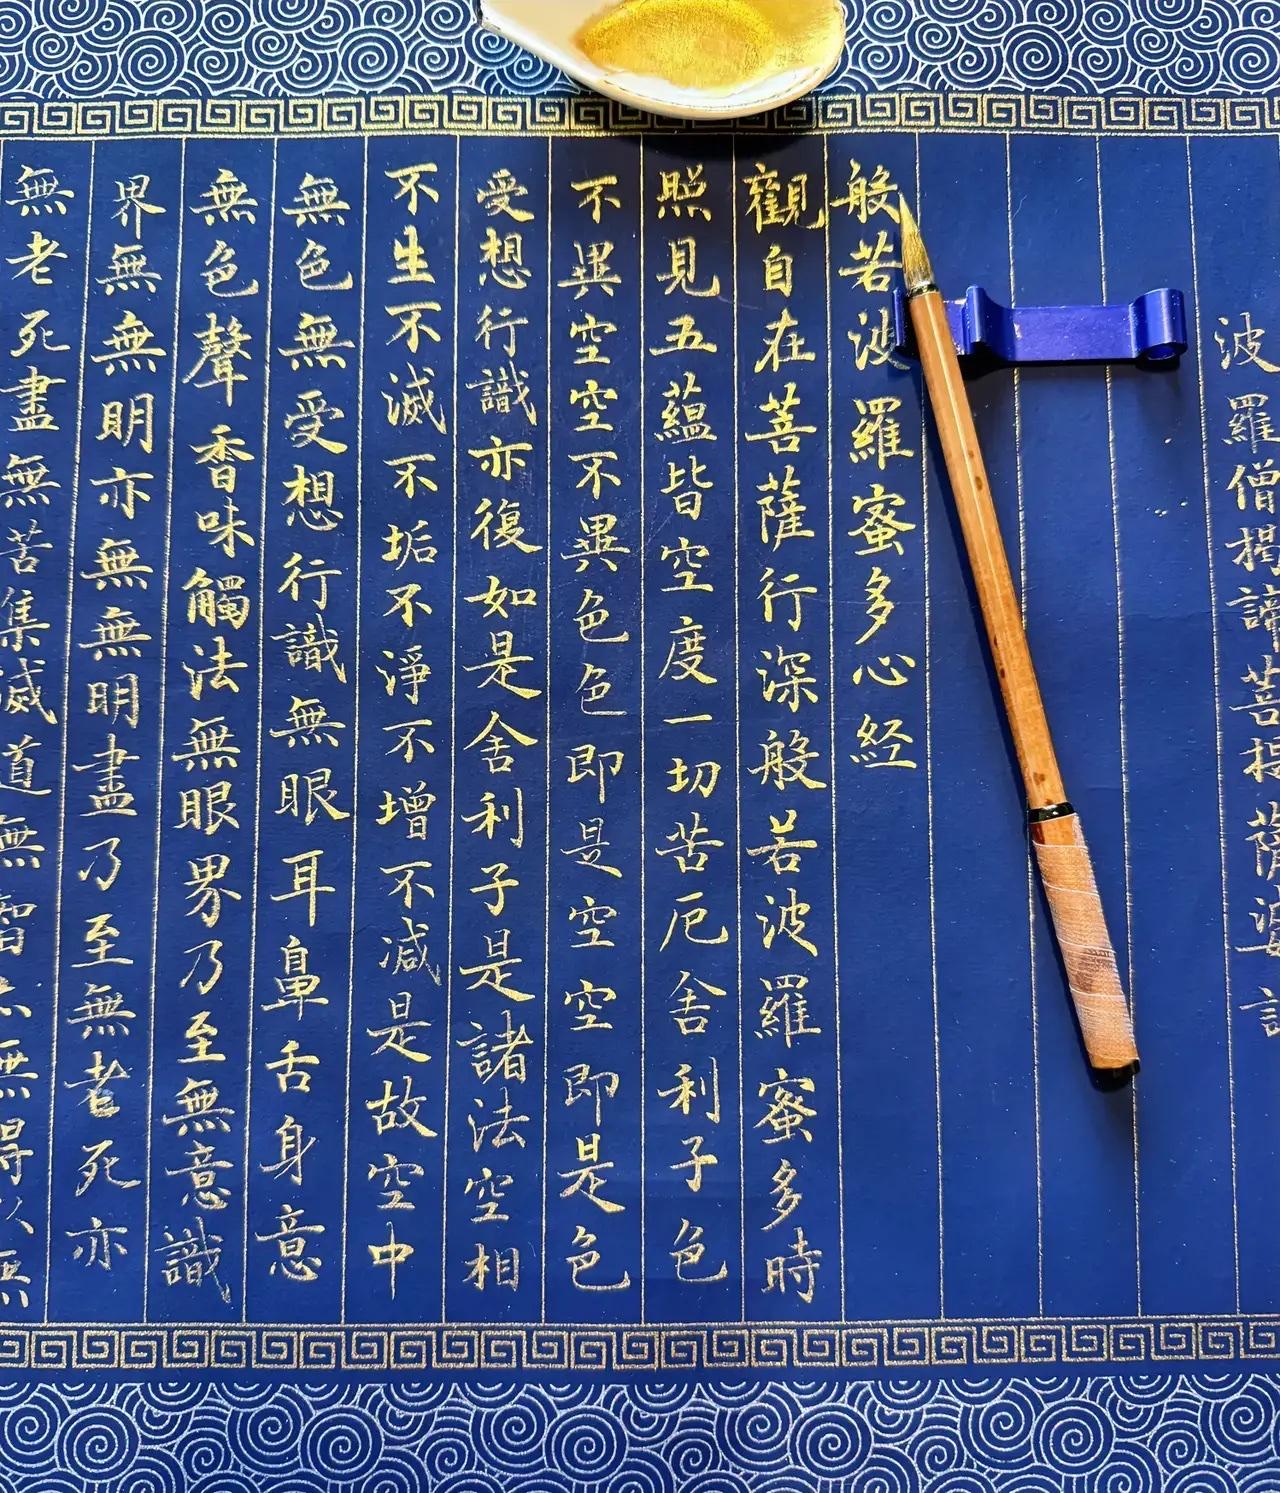 波羅僧揭諦菩提薩婆訶
般若波羅蜜多心経
觀自在菩薩行深般若波羅蜜多時
照見五蘊皆空度一切苦厄舍利子色
不異空空不異色色即是空空即是色
受想行識亦復如是舍利子是諸法空相
不生不滅不垢不淨不增不減是故空中
無色無受想行識無眼耳鼻舌身意
無色聲香味觸法無眼界乃至無意識
界無無明亦無無明盡乃至無老死亦
無老死盡無苦集滅道無智亦無得以無